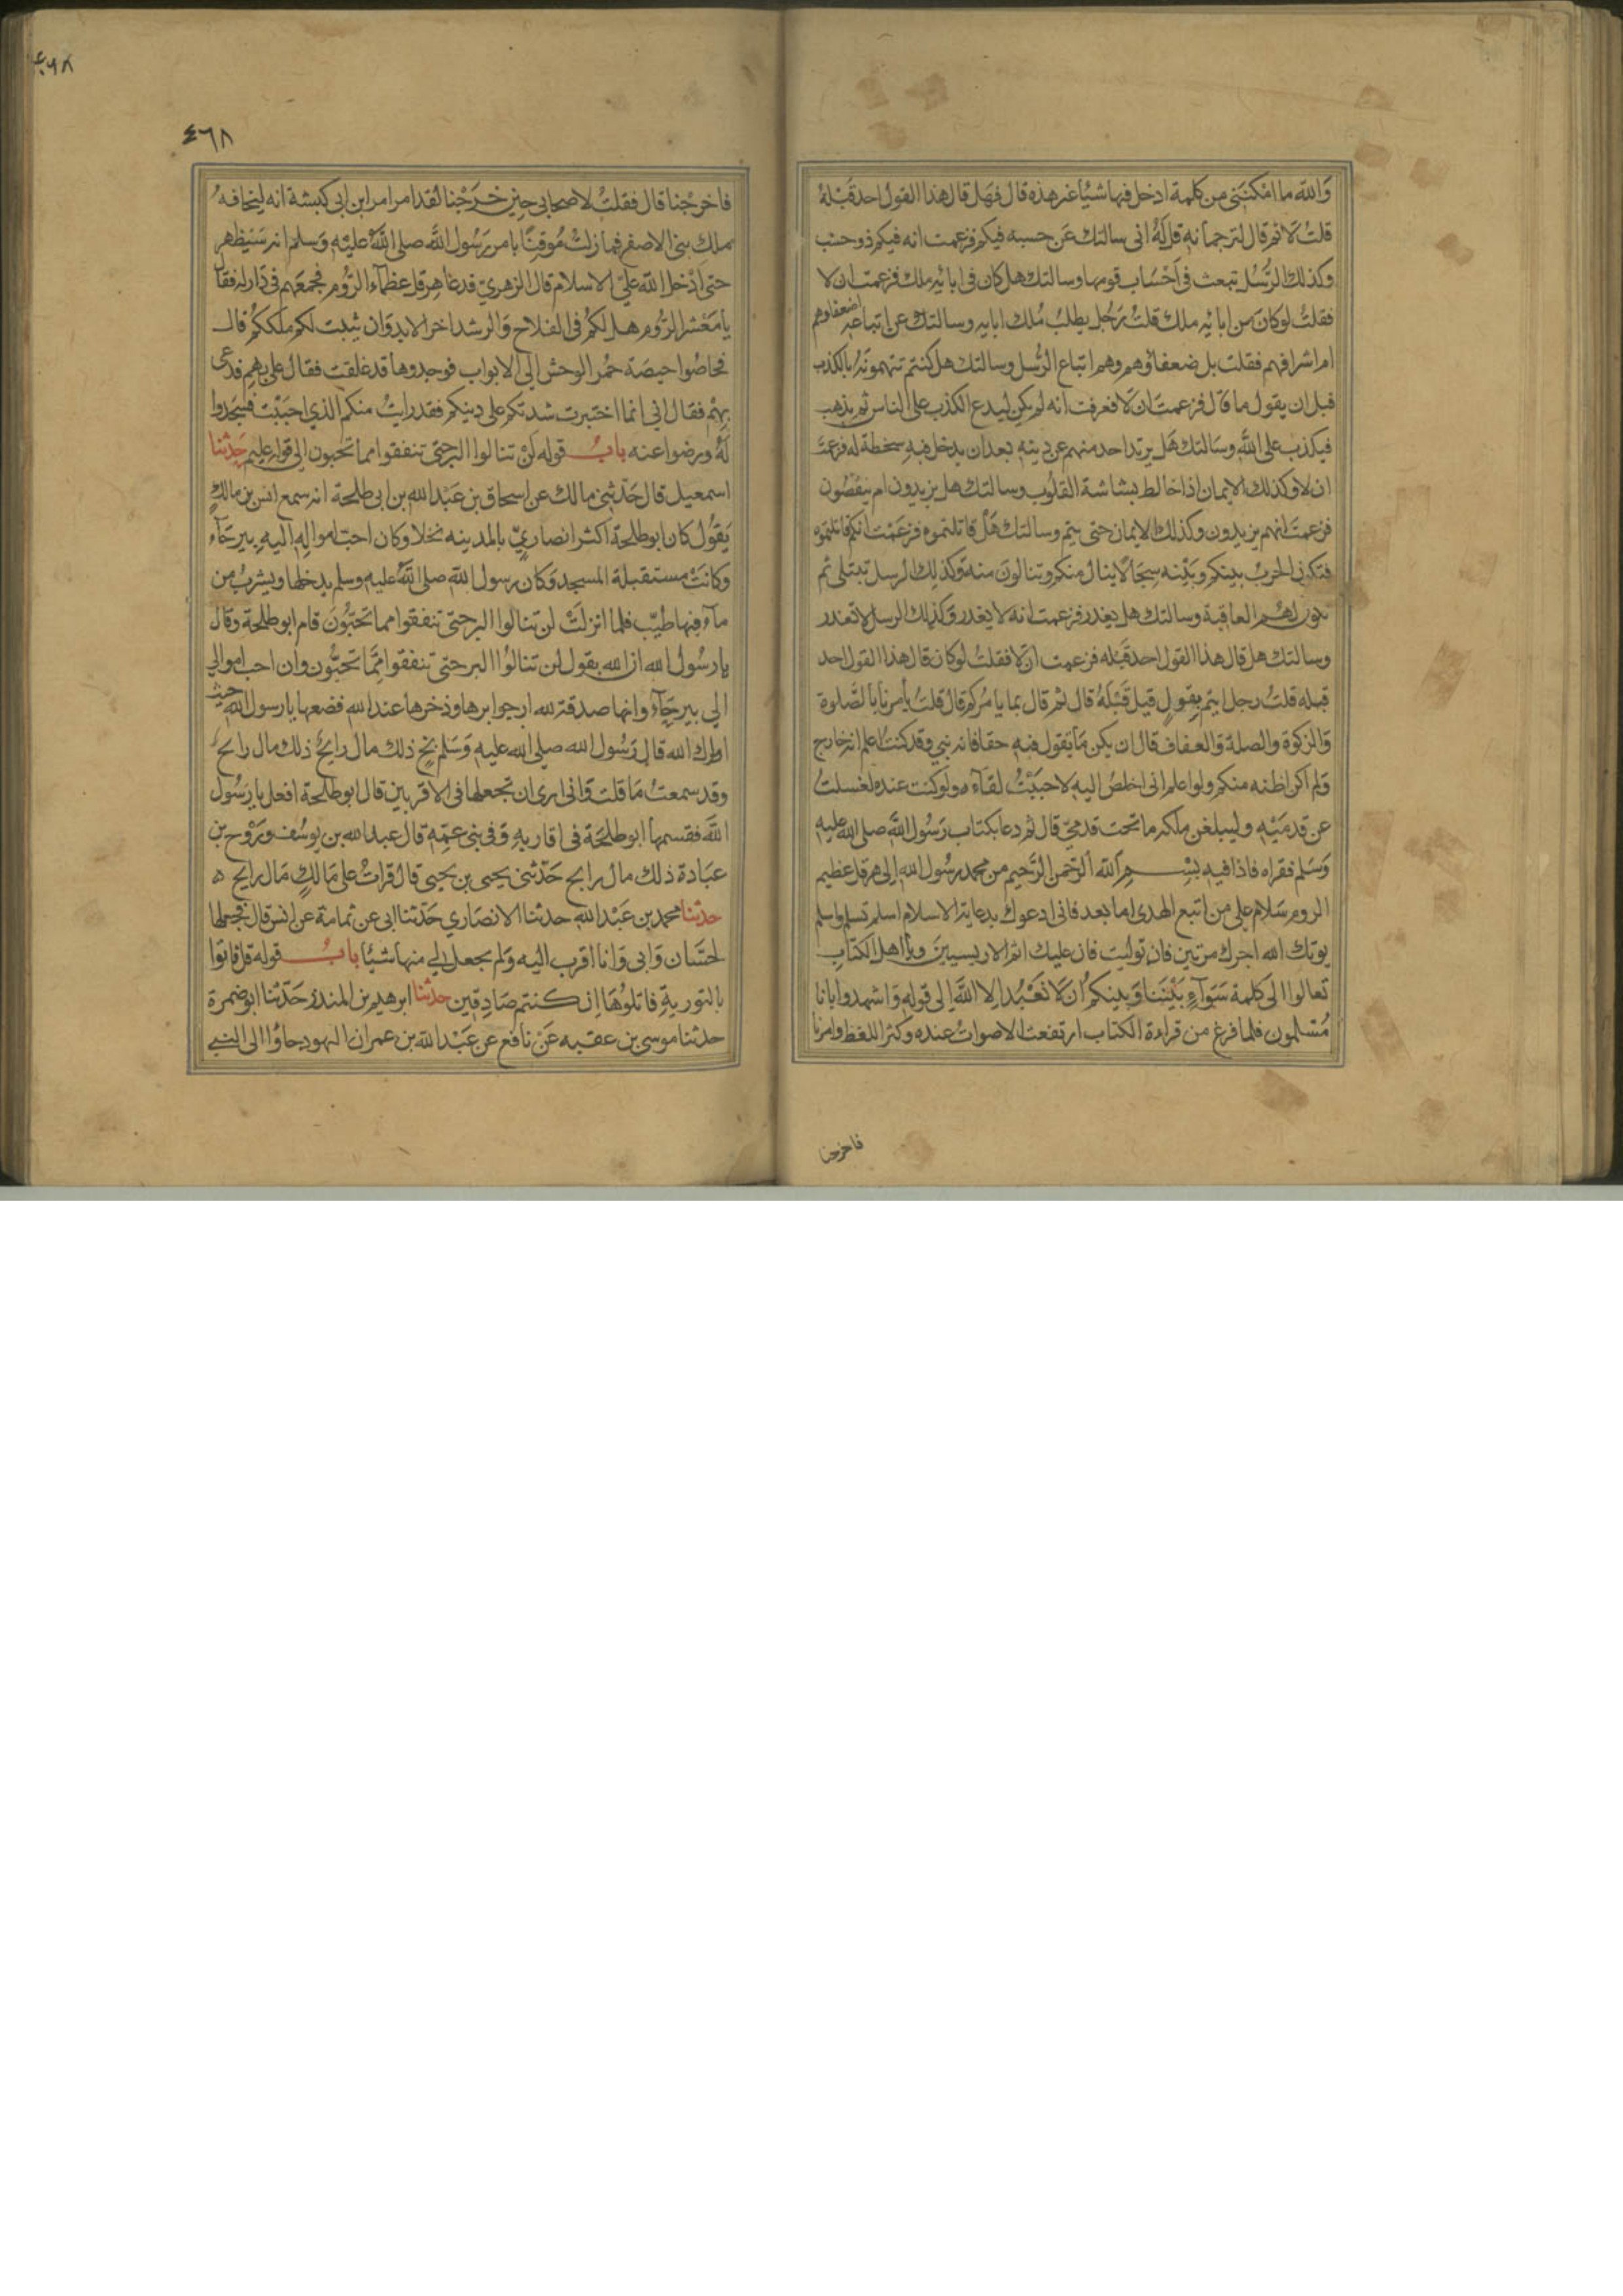 وَاللّٰه ما امْكنَنى مِن كلمة ادخل فيها شيئا غير هذه قال فهَل قال هذا القول احد قَبْلهُ
قلتُ لَا ثم قال لترجمانه قل لهُ انى سالتك عَن حسبه فيكم فزعمت انه فيكم ذو حسَب
وكذلك الرُّسُل تبعث فى اَحْسَاب قومها وسالتك هل كان فى ابائه ملك فزعمت ان لا
فقلتُ لوكانَ من ابائه ملك قلتُ رَجُل يطلبُ مُلك ابايه وسالتك عن اتباعه اضعفاوهم
ام اشرافهم فقلت بل ضعفاؤهم وهم اتباع الرُّسل وسالتك هل كنتم تتهمونَهُ بالكذب
قبل ان يقول ما قال فزعمتَ ان لَا فعرفت انه لم يكن ليدع الكذب على الناس ثم يذهب
فيكذب على اللّٰه وسَالتك هَل يرتد احد منهم عن دينه بعد ان يدخل فيهِ سخطة له فزعمتَ
ان لا وكذلك الايمان اذا خالط بشاشة القلُوب وسالتك هل يزيدون ام ينقصُون
فزعمتَ انهم يزيدون وكذلك الايمان حتى يتم وسالتك هَلْ قاتلتموه فزعَمْت انكم قاتلتموه
فتكون الحربُ بينكم وبَيْنه سِجَالًا ينال منكم وتنالونَ منه وكذلِك الرسل تبتلى ثم
تكون لهُم العاقبة وسالتك هل يغدر فزعمت انه لا يغدر وكذلك الرسل لا تغدر
وسالتك هل قال هذا القول احد قَبْله فزعمت ان لَا فقلتُ لو كان قال هذا القول احد
قبله قلتُ رجل ايتم بِقولٍ قيل قَبْلهُ قال ثم قال بما يامُركم قال قلتُ يأمرنا بالصَّلوة
وَالزكوة والصلة وَالعفاف قال ان يكن مَا يقول فيهِ حقا فانه نبى وقد كنتُ اعلم انه خارج
وَلم اكن اظنه منكم ولو اعلم انى اخلصُ اليه لاحبَبْتُ لقاءَه ولو كنت عنده لغسلتُ
عن قدمَيْه وليبلغن ملكه ما تحت قدمىَّ قال ثم دعا بكتاب رَسُول اللّٰه صلى اللّٰه عليه
وَسَلم فقراه فاذا فيه بِسْـــمِ اللّٰه الرَّحمن الرَّحيم من محمد رسُول اللّٰه الى هرقل عظيم
الروم سَلام على من اتبع الهدى اما بعد فانى ادعوك بدعاية الاسلام اسلم تسلم واسلم
يوتك اللّٰه اجرك مرتين فان توليت فان عليك اثم الاريسيين ويا اهل الكتابِ
تعالوا الى كلمة سَوَآءٍ بَيْنَنا وَبينكم ان لَا نَعْبُد الا اللّٰه الى قوله وَاشهدوا بانا
مُسْلمون فلما فرغ من قراءة الكتاب ارتفعت الاصواتُ عنده وكثر اللغط وامرنا
فاخرجنا
٤٦٨
٤٦٨
فاخرجْنا قال فقلتُ لاصحابى حِين خَرَجْنا لقد امر امر ابن ابى كبشة انه ليخافهُ
ملك بنى الاصفر فما زلتُ مُوقِنًا بامر رَسُول اللّٰه صلى اللّٰه عليْه وَسلم انه سَيَظهر
حتى ادْخل اللّٰه علىَّ الاسلام قال الزهرى فدعا هِرقل عظمآء الرُّوم فجمعَهم فى دَار له فقال
يا مَعْشر الرُّوم هل لكُم فى الفلاح وَالرشد اخر الابد وَان يثبت لكم ملككُم قالــ
فحاصُوا حيصَة حُمُر الوحش الى الابواب فوجدوها قد غلقت فقال علىَّ بهم فدعى
بهِمْ فقال انى انما اختبرت شدتكم على دينكم فقد رايتُ منكم الذى احبَبْت فسَجَدوا
لَهُ ورضوا عنه بابُـــ قوله لن تنالوا البر حتى تنفقوا مما تحبون الى قوله عليم حَدثنا
اسمعيل قال حَدَّثنى مالك عن اسحاق بن عَبْد اللّٰه بن ابى طلحة انه سمع انس بن مالكٍ
يَقُول كان ابو طلحة اكثر انصارىٍّ بالمدينه نخلا وكان احبّ امواله اليهِ بيرحَآء
وكانَتْ مستقبلة المسجد وَكان رسول اللّٰه صلى اللّٰه عليه وسلم يدخلها ويشربُ من
مآءٍ فيها طيّب فلما انزلَتْ لن تنالوا البر حتى تنفقوا مما تحبُّونَ قام ابو طلحة وقال
يا رسُول اللّٰه ان اللّٰه يقول لن تنالُوا البر حتى تنفقوا ممَّا تحبُّون وان احب اموالى
الى بيرحَآء وانها صدقة للّٰه ارجوا برها وذخرها عند اللّٰه فضعها يا رسول اللّٰه حيث
اراك اللّٰه قال رَسُول اللّٰه صلى اللّٰه عليه وَسَلم بَخٍ ذلك مال رايحُ ذلك مال رايح
وقد سمعتُ مَا قلت وَانى ارى ان تجعلها فى الاقربين قال ابو طلحة افعل يا رَسُول
اللّٰه فقسمها ابو طلحَة فى اقاربهِ وَفى بنى عمِّه قال عبد اللّٰه بن يوسُف ورَوْح بن
عبَادة ذلك مال رابح حَدَّثنى يحيى بن يحيى قال قراتُ على مَالكٍ مَال رايح ه
حدثنا محمد بن عَبْد اللّٰه حدثنا الانصَارى حَدّثنا ابى عن ثمامة عن انس قال فجعلها
لحسَّان وَابى وَانا اقرب اليْه وَلم يجعل لى منها شيئا بابُـــ قوله قل فاتوا
بالتوريةِ فاتلُوهَا ان كنتم صَادِقين حدثنا ابرهيم بن المنذر حَدّثنا ابو ضمرة
حدثنا موسى بن عقبه عَنْ نافع عن عَبْد اللّٰه بن عمر ان اليهود جاؤا الى النبى